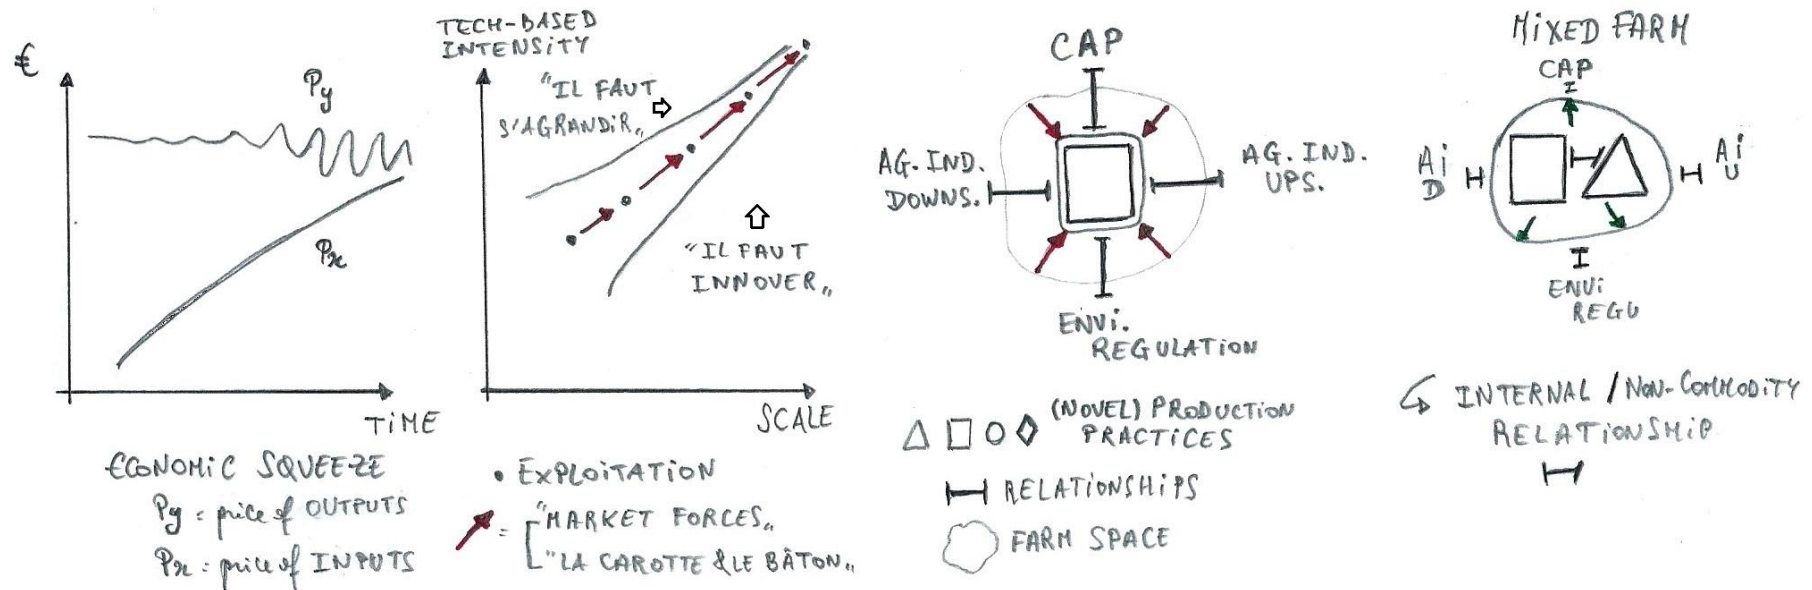 €
Py
Px
TiME
ECONOMiC SQUEEZE
Py = price of OUTPUTS
Px = price of INPUTS
TECH-BASED
INTENSiTY
"IL FAUT
S'AGRANDiR„
"IL FAUT
INNOVER„
SCALE
• EXPLOiTATiON
= "MARKET FORCES„
"LA CAROTTE & LE BÂTON„
CAP
AG. IND.
DOWNS.
AG. IND.
UPS.
ENVi.
REGULATiON
(NOVEL) PRODUCTiON
PRACTiCES
RELATiONSHiPS
FARM SPACE
MiXED FARM
CAP
Ai
D
Ai
U
ENVi
REGU
INTERNAL / NON-COMMODiTY
RELATiONSHiP